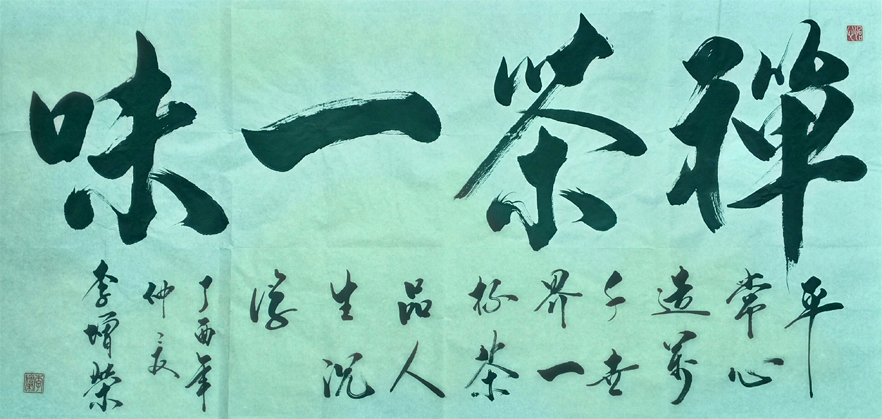 禅茶一味
平
常心
造萬
千世
界一
杯茶
品人
生沉
浮
丁酉年
仲夏
李增榮